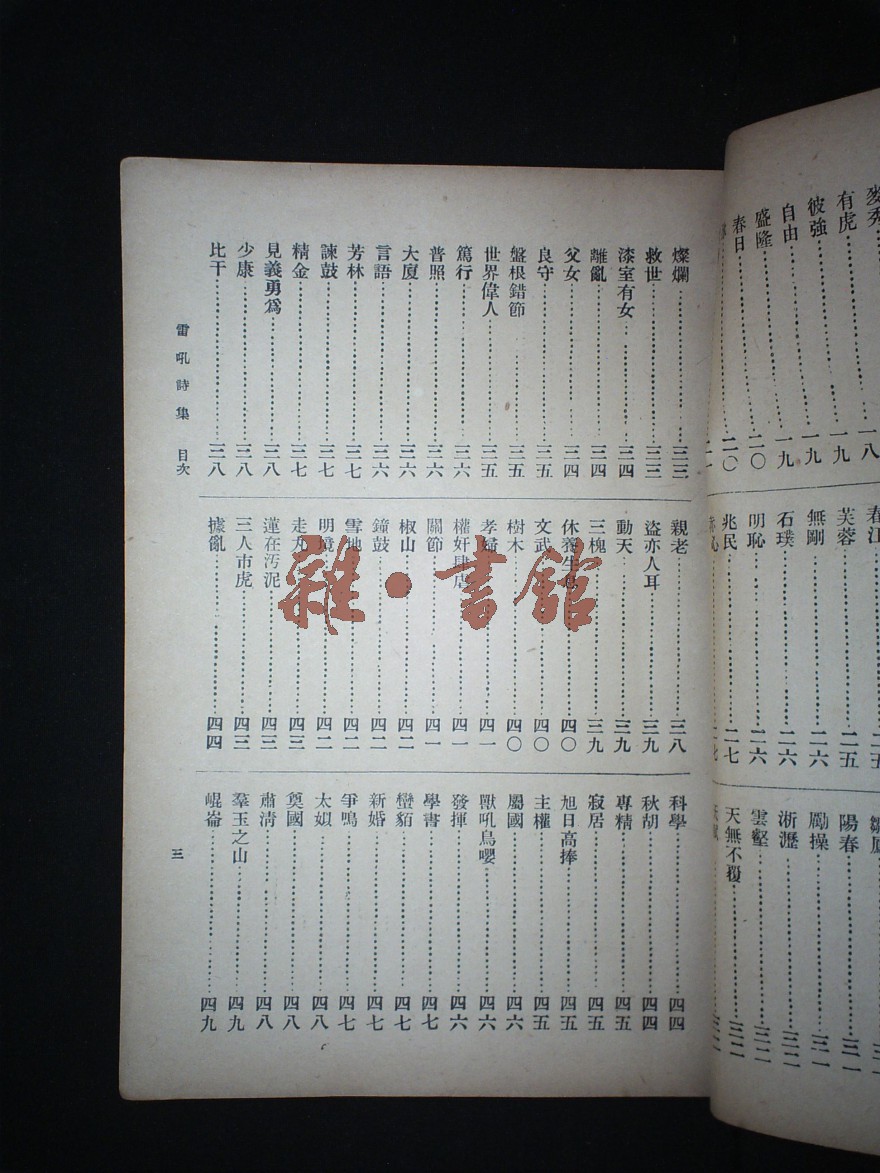 麥秀……一八
有虎……一九
彼強……一九
自由……一九
盛隆……二〇
春日……二〇
春江……二五
芙蓉……二五
無剛……二六
石璞……二六
明恥……二六
兆民……二七
陽春……三一
勵操……三一
淅瀝……三二
雲壑……三二
天無不覆……三二
燦爛……三三
救世……三三
漆室有女……三四
離亂……三四
父女……三四
良守……三五
盤根錯節……三五
世界偉人……三五
篤行……三六
普照……三六
大廈……三六
言語……三六
芳林……三七
諫鼓……三七
精金……三七
見義勇爲……三八
少康……三八
比干……三八
親老……三八
盜亦人耳……三九
動天……三九
三槐……三九
休養生息……四〇
文武……四〇
樹木……四〇
孝婦……四一
權奸肆虐……四一
關節……四一
椒山……四二
鐘鼓……四二
雪地……四二
明境……四二
走丸……四三
蓮在汚泥……四三
三人市虎……四三
據亂……四四
科學……四四
秋胡……四四
專精……四五
寂居……四五
旭日高捧……四五
主權……四五
屬國……四六
獸吼鳥嚶……四六
發揮……四六
學書……四七
蠻貊……四七
新婚……四七
爭鳴……四七
太姒……四八
奠國……四八
肅淸……四八
羣玉之山……四九
崐崙……四九
雷吼詩集 目次
三
雜·書館